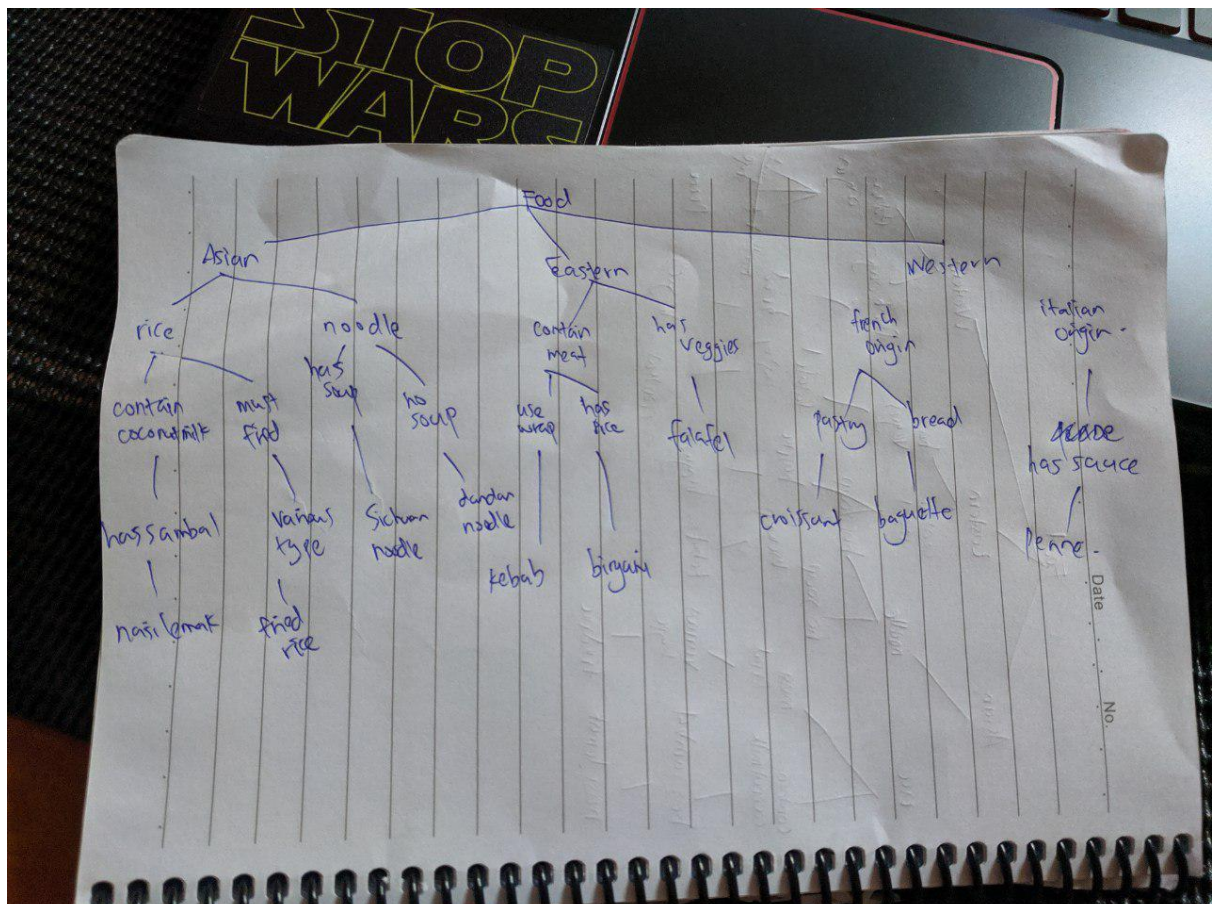 STOP
WARS
Food
Asian
Eastern
Western
rice
noodle
contain
meat
has
veggies
french
origin
italian
origin.
contain
coconutmilk
must
fried
has
soup
no
soup
use
wrap
has
rice
falafel
pastry
bread
has sauce
has sambal
various
type
Sichuan
noodle
dandan
noodle
kebab
biryani
croissant
baguette
Penne.
nasi lemak
fried
rice
Date
No.